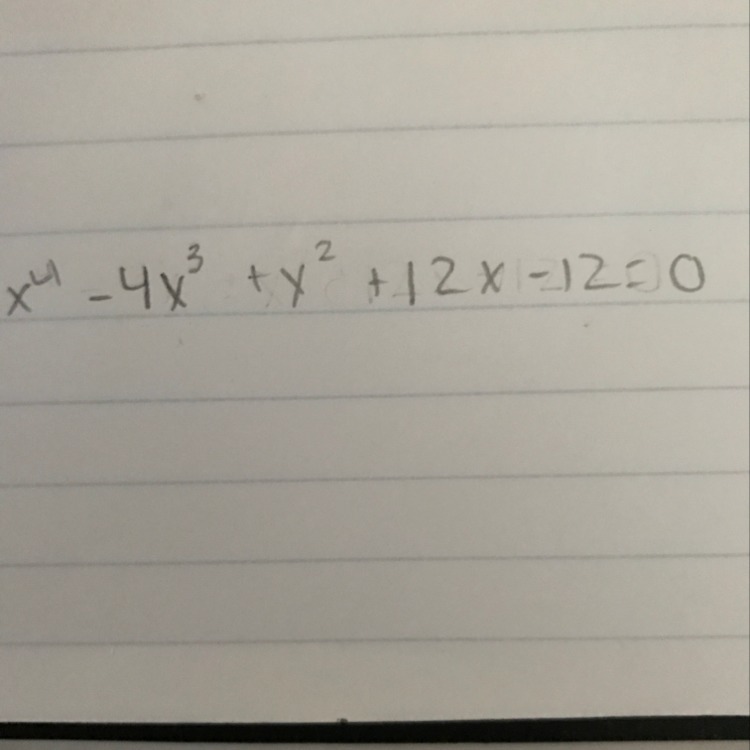 x⁴ - 4x³ + x² + 12x - 12 = 0